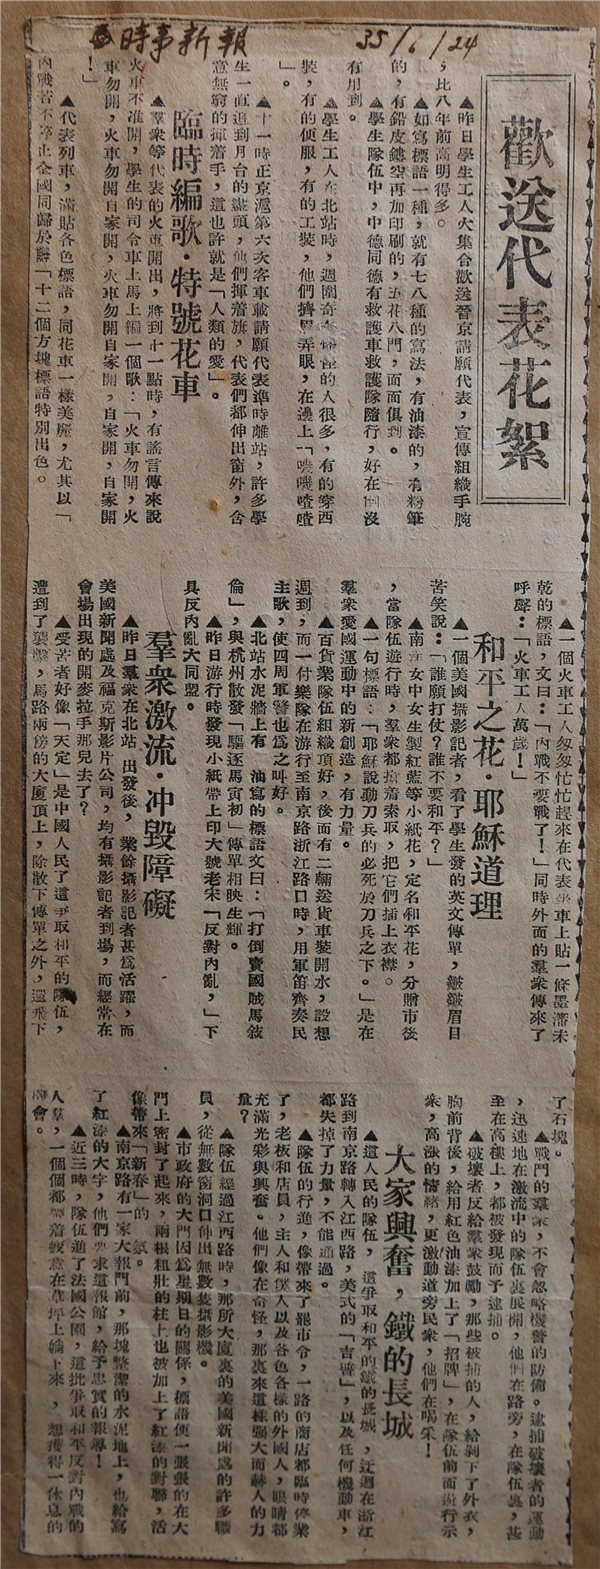 時事新報 35/6/24
歡送代表花絮
▲昨日學生工人大集合歡送晉京請願代表，宣傳組織手腕
，比八年前高明得多。
▲如寫標語一種，就有七八種的寫法，有油漆的，有粉筆
的，有鉛皮鏤空再加印刷的，五花八門，面面俱到。
▲學生隊伍中，中德同德有救護車救護隊隨行，好在倒沒
有用到。
▲學生工人在北站時，週圍奇奇怪怪的人很多，有的穿西
裝，有的便服，有的工裝，他們擠眉弄眼，在邊上「嘰嘰喳喳
」。
▲十一時正京滬第六次客車載請願代表準時離站，許多學
生一直追到月台的盡頭，他們揮着旗，代表們都伸出窗外，含
意無窮的揮着手，這也許就是「人類的愛」。
臨時編歌·特號花車
▲羣衆等代表的火車開出，將到十一點時，有謠言傳來說
火車不准開，學生的司令車上馬上編一個歌：「火車勿開，火
車勿開，火車勿開自家開，火車勿開自家開，自家開，自家開
！」
▲代表列車，滿貼各色標語，同花車一樣美麗，尤其以「
內戰若不停止全國同歸於盡「十二個方塊標語特別出色。
▲一個火車工人匆匆忙忙趕來在代表車上貼一條墨瀋未
乾的標語，文曰：「內戰不要戰了！」同時外面的羣衆傳來了
呼聲：「火車工人萬歲！」
和平之花·耶穌道理
▲一個美國攝影記者，看了學生發的英文傳單，皺皺眉目
苦笑說：「誰願打仗？誰不要和平？」
▲南洋女中女生製紅藍等小紙花，定名和平花，分贈市後
，當隊伍遊行時，羣衆都搶着索取，把它們插上衣襟。
▲一句標語：「耶穌說動刀兵的必死於刀兵之下。」是在
羣衆愛國運動中的新創造，有力量。
▲百貨業隊伍組織頂好，後面有二輛送貨車裝開水，設想
週到，而一付樂隊在游行至南京路浙江路口時，用軍笛齊奏民
主歌，使四周軍警也爲之叫好。
▲北站水泥牆上有 油寫的標語文曰：「打倒賣國賊馬敍
倫」，與杭州散發「驅逐馬寅初」傳單相映生輝。
▲昨日游行時發現小紙帶上印大號老宋「反對內亂，」下
具反內亂大同盟。
羣衆激流·冲毀障礙
▲昨日羣衆在北站 出發後，業餘攝影記者甚爲活躍，而
美國新聞處及福克斯影片公司，均有攝影記者到場，而經常在
會場出現的開麥拉手那兒去了？
▲受苦者好像「天定」是中國人民了這爭取和平的隊伍，
遭到了襲擊，馬路兩傍的大廈頂上，除散下傳單之外，還飛下
了石塊。
▲戰鬥的羣衆，不會忽略機警的防備。逮捕破壞者的運動
，迅速地在激流中的隊伍裏展開，他們在路旁，在隊伍裏，甚
至在高樓上，都被發現而予逮捕。
▲破壞者反給羣衆鼓勵，那些被捕的人，給剝下了外衣，
胸前背後，給用紅色油漆加上了「招牌」，在隊伍前面遊行示
衆，高漲的情緒，更激動道旁民衆，他們在喝采！
大家興奮，鐵的長城
▲這人民的隊伍，這爭取和平的鐵的長城，迂迴在浙江
路到南京路轉入江西路，美式的「吉普」，以及任何機動車，
都失掉了力量，不能通過。
▲隊伍的行進，像帶來了罷市令，一路的商店都臨時停業
了，老板和店員，主人和僕人以及各色各樣的外國人，眼睛都
充滿光彩與興奮。他們像在奇怪，那裏來這樣强大而赫人的力
量？
▲隊伍經過江西路時，那所大廈裏的美國新聞處的許多職
員，從無數窗洞口伸出無數隻攝影機。
▲市政府的大門因爲星期日的關係，標語使一張張的在大
門上密封了起來，兩根粗壯的柱上也被加上了紅漆的對聯，活
像帶來「新春」的 氛。
▲南京路有一家大報門前，那塊整潔的水泥地上，也給寫
了紅漆的大字，他們要求這報館，給予忠實的報導！
▲近三時，隊伍進了法國公園，這批爭取和平反對內戰的
人羣，一個個都帶着疲憊在草坪上躺下來，想獲得一休息的
機會。